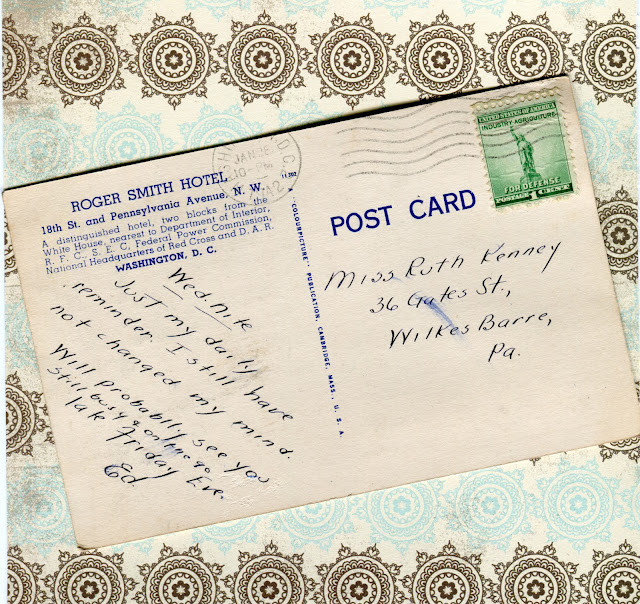 ROGER SMITH HOTEL
18th St. and Pennsylvania Avenue, N. W.
A distinguished hotel, two blocks from the
White House, nearest to Department of Interior,
R. F. C., S. E. C., Federal Power Commission,
National Headquarters of Red Cross and D. A. R.
WASHINGTON, D. C.
Wed. Nite
Just my daily
reminder. I still have
not changed my mind.
Will probably see you
late Friday Eve.
Still busy & on the go.
Ed.
"COLOURPICTURE" PUBLICATION, CAMBRIDGE, MASS., U. S. A.
D.C.
JAN 28
10-PM
POST CARD
UNITED STATES OF AMERICA
INDUSTRY AGRICULTURE
FOR DEFENSE
POSTAGE 1 CENT
Miss Ruth Kenney
36 Gates St.,
Wilkes Barre,
Pa.